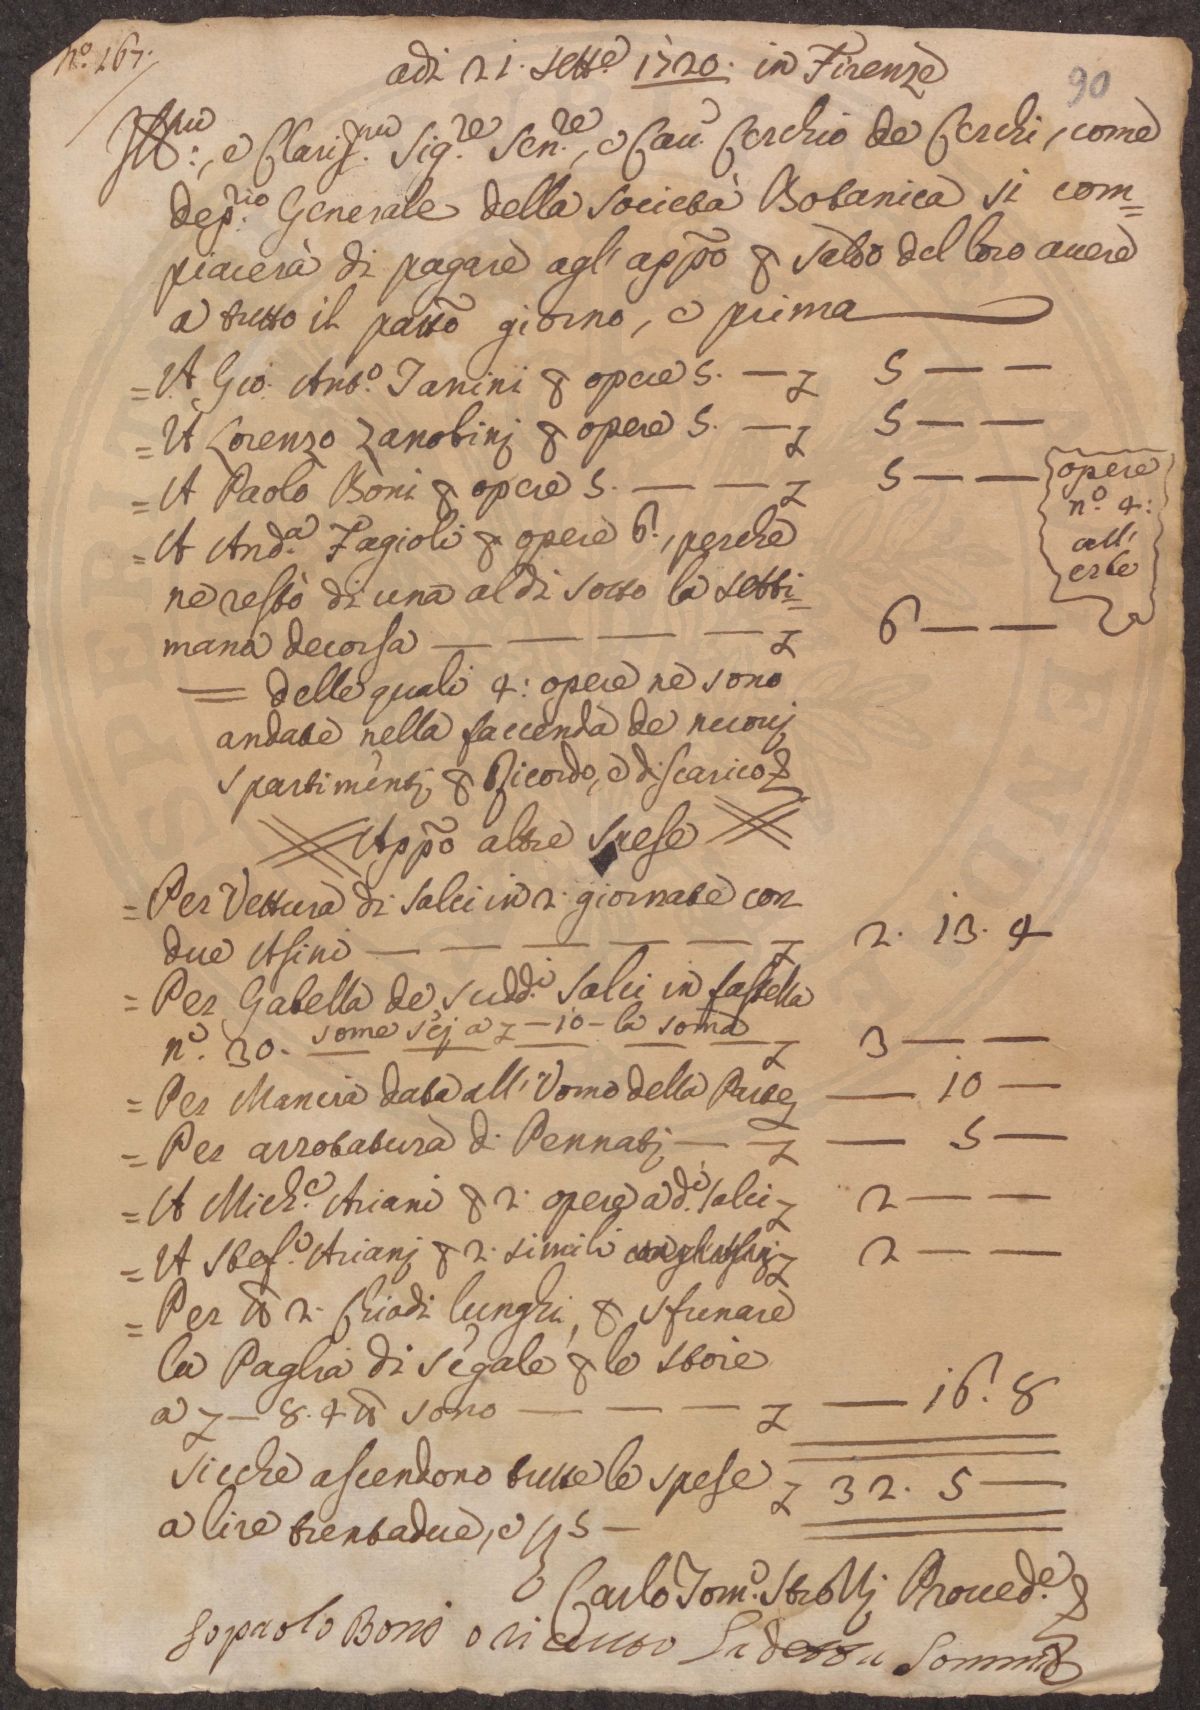 N.º 167.
90
adi 21. Sett.e 1720. in Firenze
Ill.mo, e Claris.mo Sig.re Sen.re, e Cau.r Cerchio de Cerchi, come
dep.rio Generale della Società Botanica si com=
piacerà di pagare agl' appõ p saldo del loro auere
a tutto il pattõ giorno, e prima
= A Gio. Ant.o Janini p opere 5. — £ 5 — —
= A Lorenzo Zanobinj p opere 5. — £ 5 — —
= A Paolo Boni p opere 5. — — — £ 5 — —
opere
n.º 4:
all'
erbe
= A And.a Fagioli p opere 6., perche
ne restò di una al di sotto la setti=
mana decorsa — — — — £ 6 — —
= delle quali 4: opere ne sono
andate nella faccenda de nuouj
spartimentj p Ricordo, e discarico
Appõ altre spese
= Per Vettura di salci in 2. giornate con
due Asini — — — — — £ 2. 13. 4
= Per Gabella de sudd.i salci in fastella
some sej a £ — 10 — la soma
n.º 30. — — — — — £ 3 — —
= Per Mancia data all' Uomo della — 10 —
= Per arrotatura di Pennatj — — £ — 5 —
= A Mich.e Ariani p 2. opere a d.i salci £ 2 — —
= A Stef.o Arianj p 2. simili £ 2 — —
= Per lb 2. Chiodi lunghi, p sfunare
la Paglia di segale p le stoie
a £ — 8. 4 lb sono — — — — £ — 16. 8
Sicche ascendono tutte le spese £ 32. 5 —
a lire trentadue, e ß 5 —
Carlo Tom.o Strozzj Proued.e
Jo paolo Boni o riceuuto La detta Somma